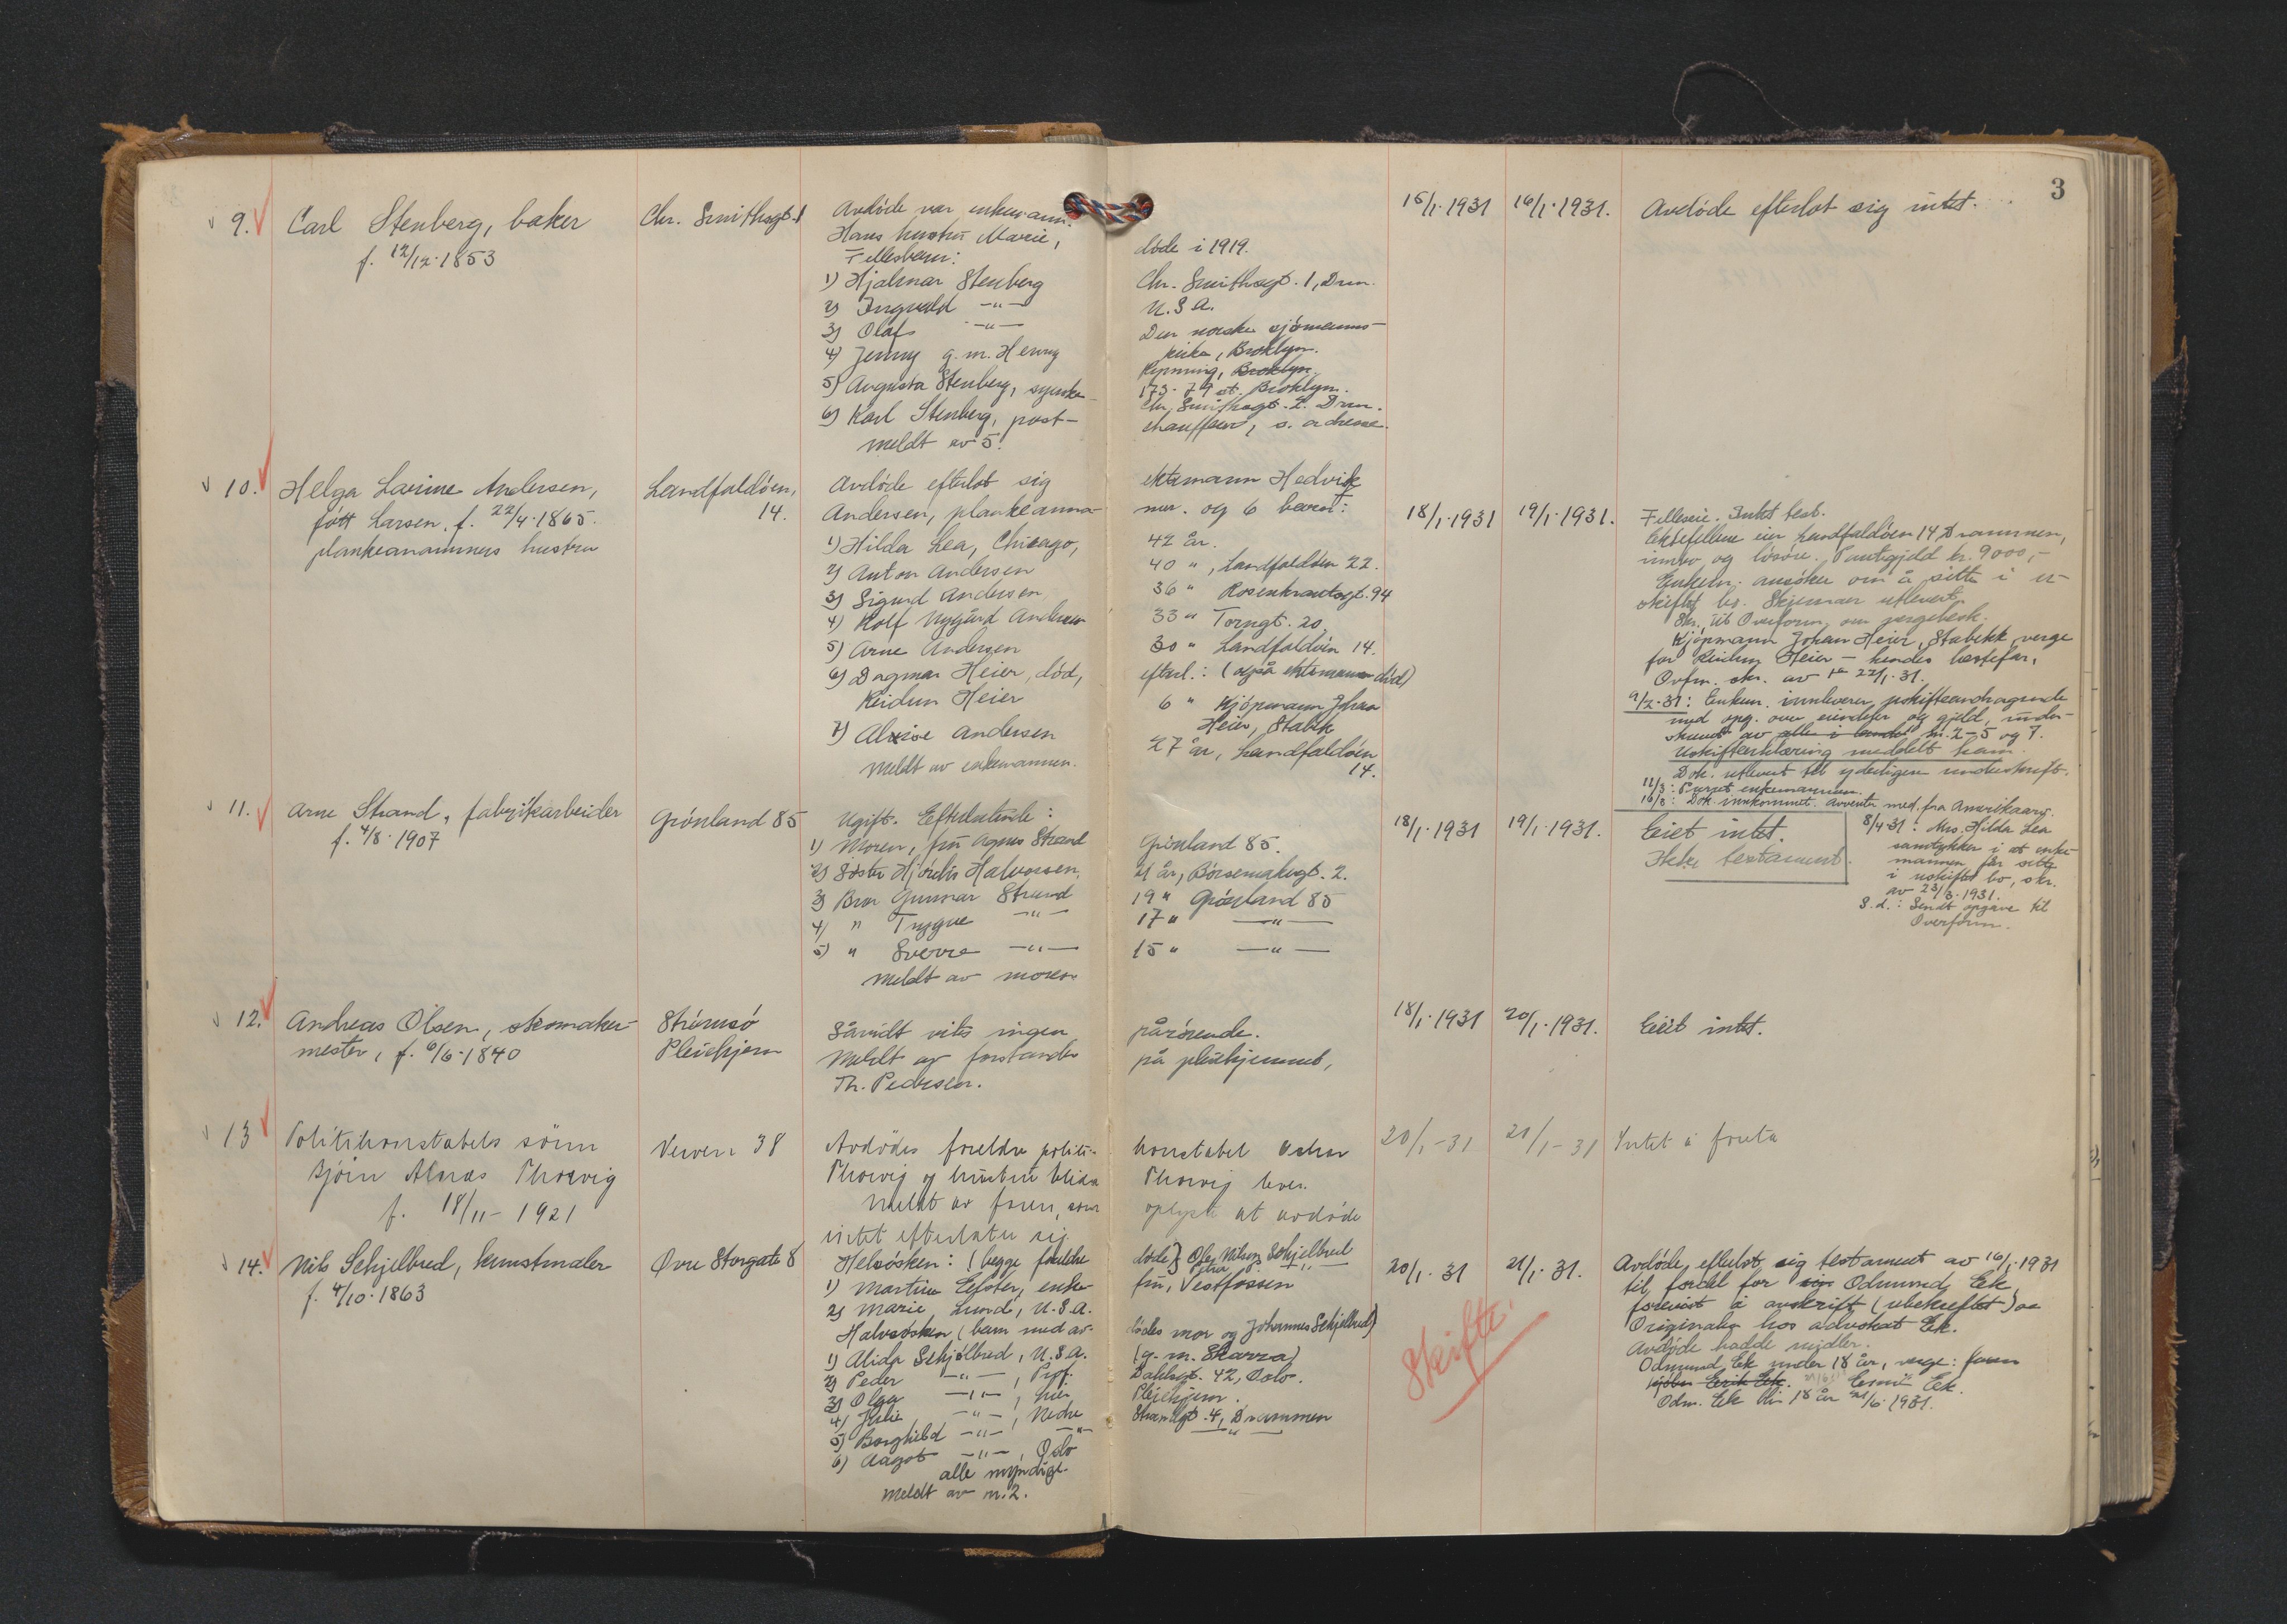 3
9. Carl Stenberg, baker
f. 12/12-1853
Chr. Smithsgt. 1
Avdöde var enkemann.
Hans hustru Marie, döde i 1919.
Fellesbarn:
1) Hjalmar Stenberg Chr. Smithsgt. 1, Drm.
2) Ingvald -"- U.S.A.
3) Olaf -"- Den norske sjömanns-
kirke, Broklyn.
4) Jenny g.m. Henry Rynning, Broklyn.
173-79 st. Broklyn.
5) Augusta Stenberg, Chr. Smithsgt. 2. Drm.
6) Karl Stenberg, post- chauffeur, s. adresse.
meldt av 5.
16/1-1931 16/1-1931. Avdöde efterlot sig intet.
10. Helga Lovine Andersen,
fött Larsen, f. 22/4-1865.
plankeanammers hustru
Landfaldöen,
14.
Avdöde efterlot sig ektemann Hedvik
Andersen, plankeanna- mer. og 6 barn:
1) Hilda Lea, Chicago, 42 år.
2) Anton Andersen 40 ", Landfaldöen 22.
3) Sigurd Andersen 36 " Rosenkrantzgt. 94
4) Rolf Nygård Andersen 33 " Torngt. 20.
5) Arne Andersen 30 " Landfaldöen 14.
6) Dagmar Heier, död, efterl.: (også ektemann död)
Reidun Heier 6 " Kjöpmann Johan
Heier, Stabk
7) Andersen 27 år, Landfaldöen
14.
Meldt av enkemannen.
18/1-1931 19/1-1931.
Felleseie. Intet test.
Ektefellene eier Landfaldöen 14 Drammen,
innbo og lösöre. Pantgjeld kr. 9000,-
Enkem. ansöker om å sitte i u-
skiftet bo. Skjemaer utlevert.
Skr. til Overform. om vergebesk.
Kjöpmann Johan Heier, Stabekk, verge
for Reidun Heier - hendes bestefar,
Ovfm. skr. av 22/1-31.
9/2-31: Enkem. innleverer uskifteandragende
med opg. over eiendeler og gjeld, under-
skrevet av alle i landet nr. 2-5 og 7.
Uskifteerklæring meddelt ham.
Dok. utlevert til yderligere underskrift.
11/3: Purret enkemannen.
16/3: Dok. innkommet. Avventer med. fra Amerikaarv.
8/4-31: Mrs. Hilda Lea
samtykker i at enke-
mannen får sitte
i uskiftet bo, skr.
av 23/3-1931.
S.d.: Sendt opgave til
Overform.
11. Arne Strand, fabrikarbeider
f. 4/8-1907
Grönland 85
Ugift. Efterlatende:
1) Moren, fru Agnes Strand Grönland 85.
2) Söster Hjördis Halvorsen, 21 år, Börsemakergt. 2.
3) Bror Gunnar Strand 19 " Grönland 85
4) " Trygve -"- 17 " -"-
5) " Sverre -"- 15 " -"-
Meldt av moren
18/1-1931 19/1-1931.
Eiet intet.
Ikke testament.
12. Andreas Olsen, skomaker-
mester, f. 6/6-1840
Strömsö
Pleiehjem
Såvidt vites ingen pårörende.
Meldt av forstander på pleiehjemmet,
Th. Pedersen.
18/1-1931 20/1-1931. Eiet intet.
13 Politikonstabels sönn
Björn Thorvig
f. 18/11-1921
Verven 38
Avdödes foreldre politi- konstabel Oskar
Thorvig og hustru Thorvig lever.
Meldt av faren, som oplyste at avdöde
intet efterlater sig
20/1-31 21/1-31 Intet å foreta
14. Nils Schjelbred, kunstmaler
f. 4/10-1863
Övre Storgate 8
Helsösken: (begge foreldre döde) Ole Nilsen Schjelbred
Petra -"-
1) Martine Elster, enke- fru, Vestfossen
2) Marie Lund, U.S.A.
Halvsösken (barn med av- dödes mor og Johannes Schjelbred)
1) Alida Schjelbred, U.S.A. (g.m. Skarra)
2) Peder -"-, Prof. Dahlsgt. 42, Oslo.
3) Olga -"-, hier Pleiehjem.
4) Julie -"-, Nedre Strandgt. 4, Drammen
5) Borghild -"- -"- -"-
6) Aagot -"-, Oslo
alle myndige.
Meldt av nr. 2.
20/1-31 21/1-31.
Skifte!
Avdöde efterlot sig testament av 16/1-1931
til fordel for Odmund Ek,
forevist i avskrift (ubekreftet)
Originalen hos advokat Ek.
Avdöde hadde midler.
Odmund Ek under 18 år, verge: faren
Erik Ek. Ek.
Odm. Ek blir 18 år 21/6-1931.